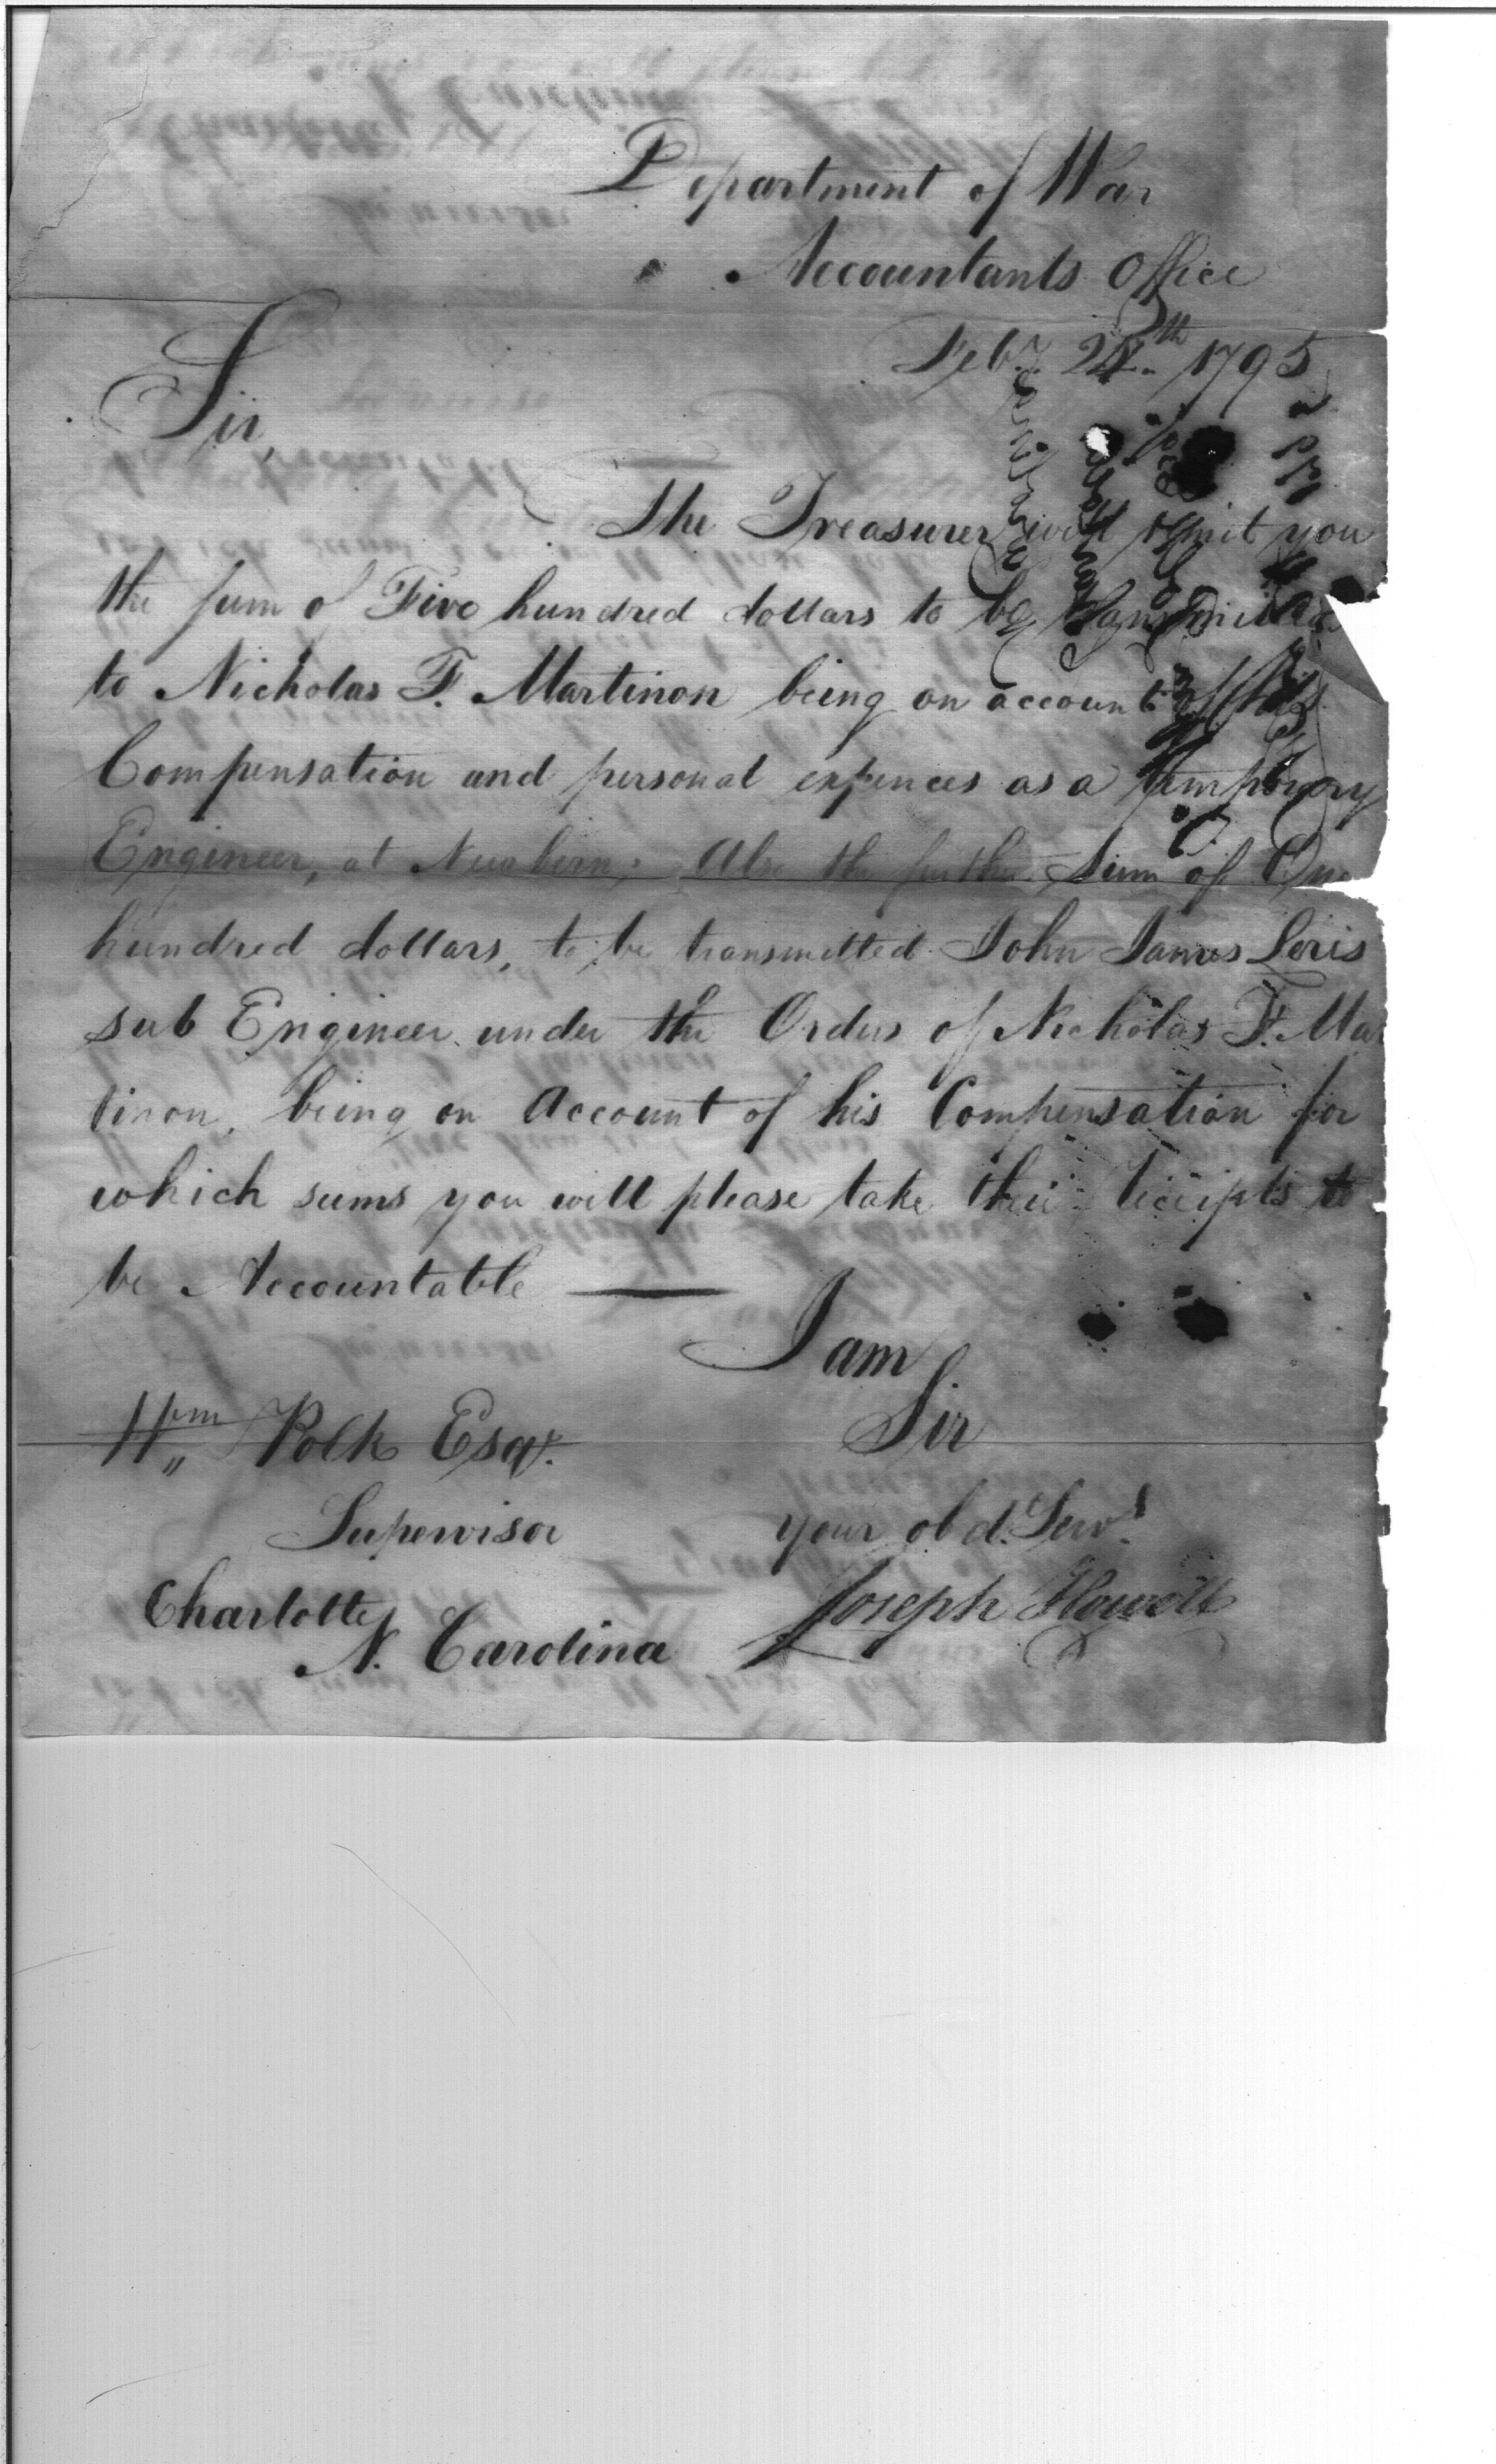 Department of War
Accountants Office
Feby. 24th 1795
Sir,
The Treasurer will remit you
the sum of Five hundred dollars to be transmitted
to Nicholas F. Martinon being on account of his
Compensation and personal expences as a temporary
Engineer, at Newbern; Also the further Sum of One
hundred dollars, to be transmitted John James Loris
sub Engineer under the Orders of Nicholas F. Mar
tinon, being on Account of his Compensation for
which sums you will please take their receipts to
be Accountable —
I am
Sir
Wm Polk Esqr.
Supervisor
your obd. Servt.
Charlotte
Joseph Howell
N. Carolina